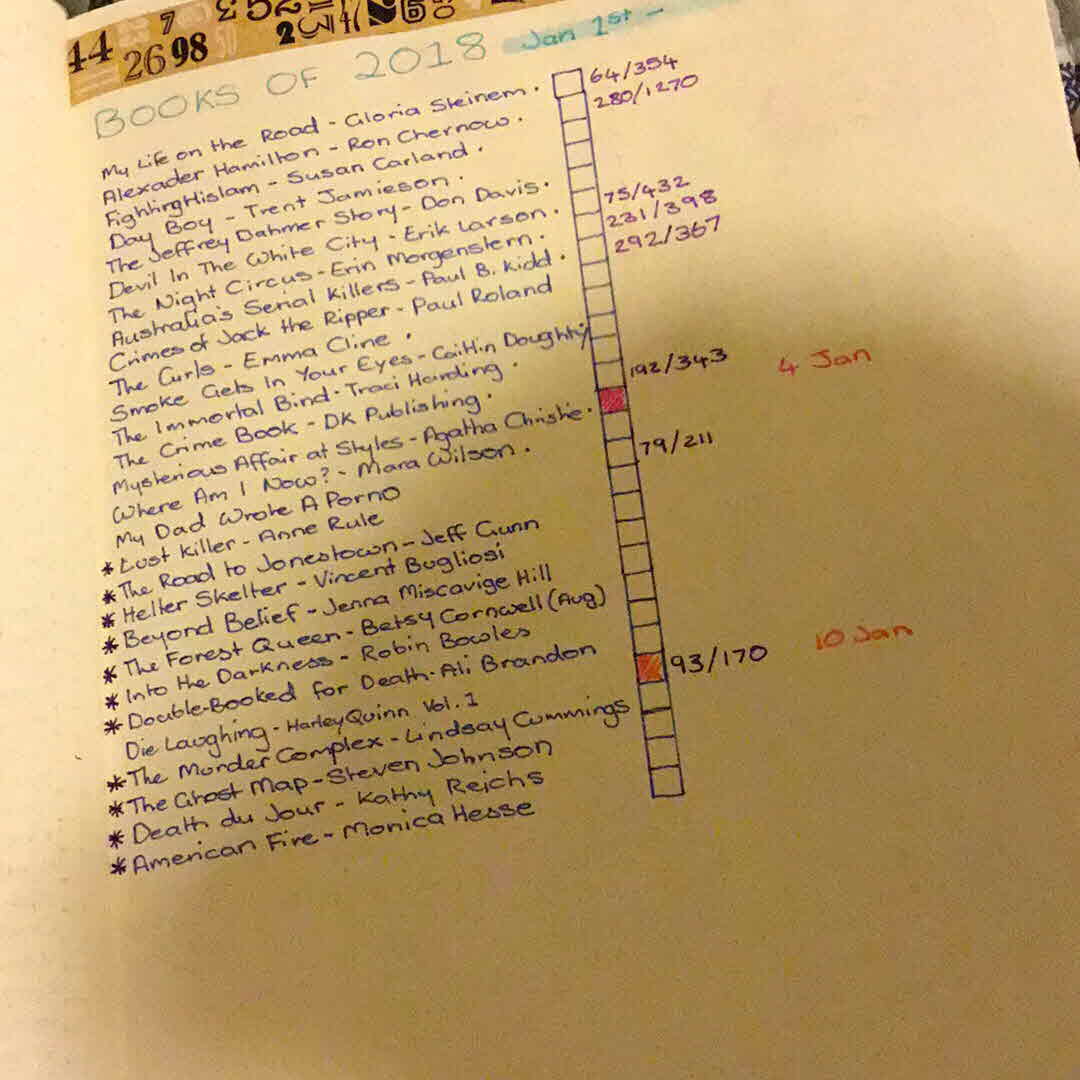 44 26 7 98 50 £52
BOOKS OF 2018 Jan 1st -
My Life on the Road - Gloria Steinem. 64/354
Alexader Hamilton - Ron Chernow. 280/1270
Fighting Hislam - Susan Carland.
Day Boy - Trent Jamieson.
The Jeffrey Dahmer Story - Don Davis. 75/432
Devil In The White City - Erik Larson. 231/398
The Night Circus - Erin Morgenstern. 292/367
Australia's Serial Killers - Paul B. Kidd.
Crimes of Jack the Ripper - Paul Roland
The Girls - Emma Cline.
Smoke Gets In Your Eyes - Caitlin Doughty 192/343 4 Jan
The Immortal Bind - Traci Harding.
The Crime Book - DK Publishing.
Mysterious Affair at Styles - Agatha Christie. 79/211
Where Am I Now? - Mara Wilson.
My Dad Wrote A Porno
* Lust Killer - Anne Rule
* The Road to Jonestown - Jeff Gunn
* Helter Skelter - Vincent Bugliosi
* Beyond Belief - Jenna Miscavige Hill
* The Forest Queen - Betsy Cornwell (Aug)
* Into the Darkness - Robin Bowles
* Double-Booked for Death - Ali Brandon 93/170 10 Jan
Die Laughing - Harley Quinn Vol. 1
* The Murder Complex - Lindsay Cummings
* The Ghost Map - Steven Johnson
* Death du Jour - Kathy Reichs
* American Fire - Monica Hesse